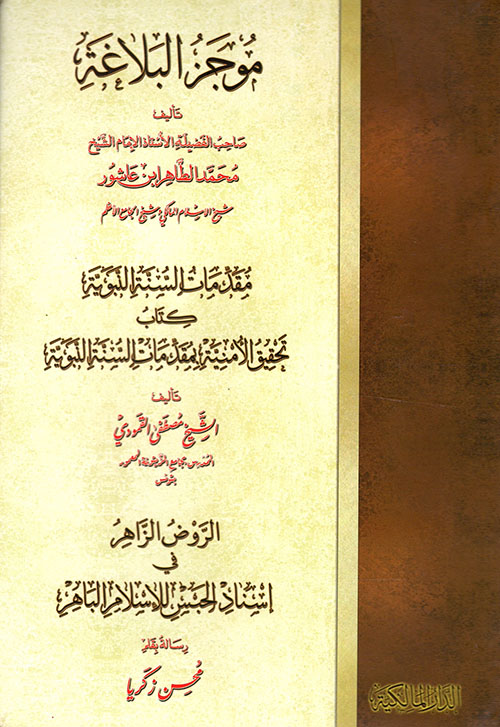 مُوجَزُ البَلَاغَةِ
تأليف
صَاحِبُ الفَضِيلَةِ الأُسْتَاذُ الإِمَامُ الشَّيْخُ
مُحَمَّد الطَّاهِر ابن عَاشُور
شيخ الإسلام المالكي وشيخ الجامع الأعظم
مُقَدِّمَاتُ السُّنَّةِ النَّبَوِيَّةِ
كِتَابُ
تَحْقِيقُ الأُمْنِيَّةِ بِمُقَدِّمَاتِ السُّنَّةِ النَّبَوِيَّةِ
تأليف
الشَّيْخِ مُصْطَفَى القَمُّودِيّ
المدرس بجامع الزيتونة المعمور
بتونس
الرَّوْضُ الزَّاهِرُ
في
إِسْنَادِ الحَبْسِ لِلإِسْلَامِ البَاهِرِ
رِسَالَة بِقَلَم
مُحْسِن زَكَرِيَّا
الدار المالكية